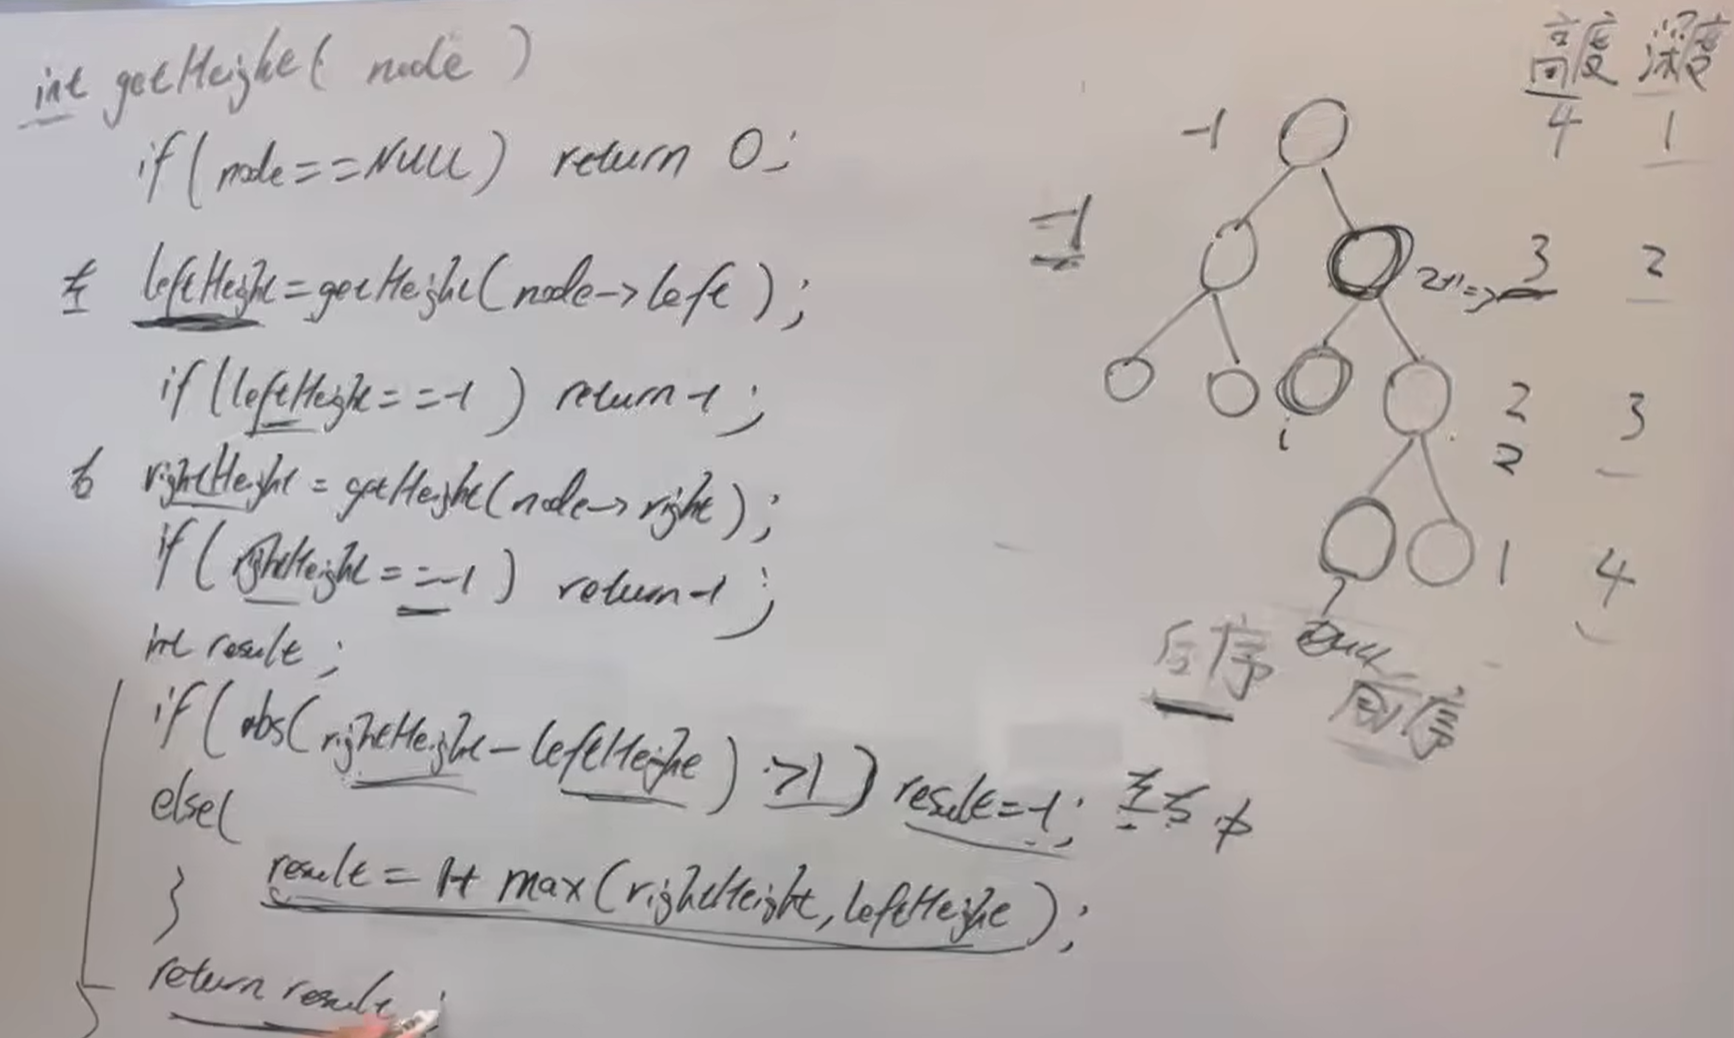 int getHeight( node )
if( node==NULL) return 0;
左 leftHeight=getHeight(node->left);
if(leftHeight==-1) return-1;
右 rightHeight=getHeight(node->right);
if(rightHeight==-1) return-1;
int result;
if(abs(rightHeight-leftHeight)>1) result=-1; 左右中
else{
result=1+max(rightHeight,leftHeight);
}
return result;
}
高度 深度
-1 4 1
-1 3 2
2 3
2
1
1 4
后序
前序